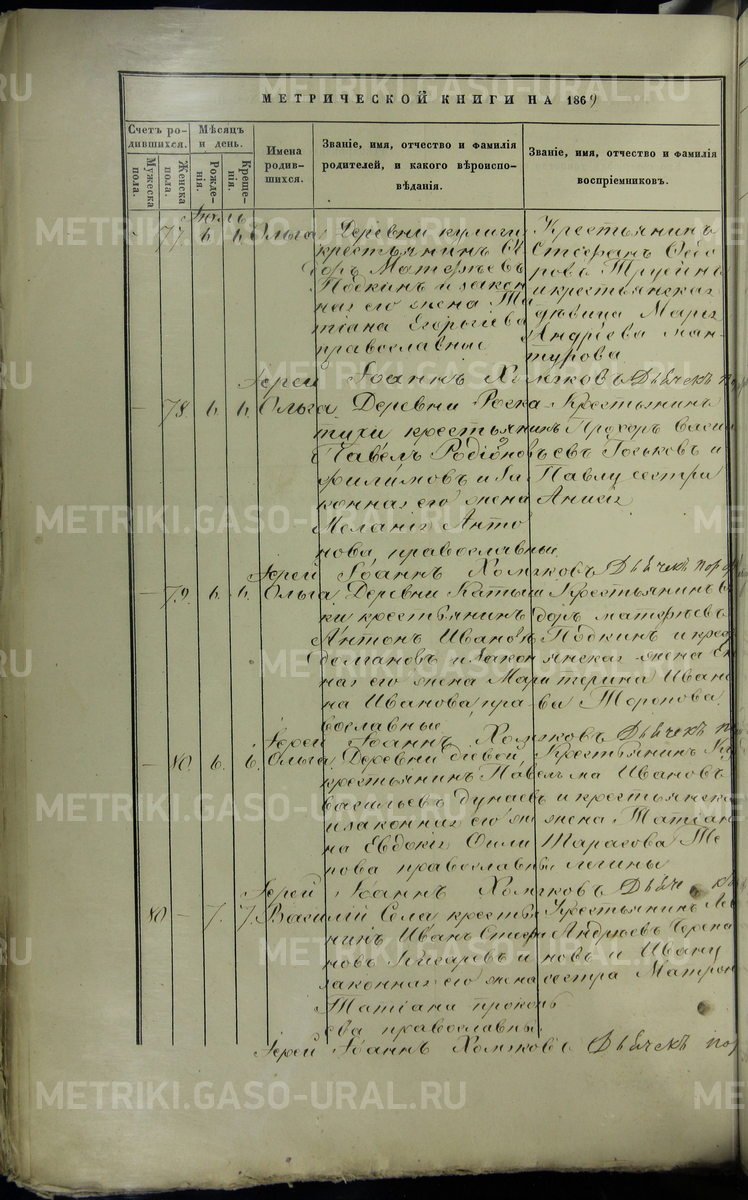 МЕТРИЧЕСКОЙ КНИГИ НА 1869
Счетъ родившихся.
Мужеска пола.
Женска пола.
Мѣсяцъ и день.
Рожденія.
Крещенія.
Имена родившихся.
Званіе, имя, отчество и фамилія родителей, и какого вѣроисповѣданія.
Званіе, имя, отчество и фамилія воспріемниковъ.
Іюль
77 6 6 Ольга Деревни
крестьянинъ
Матѳѣевъ
Подкинъ и закон
ная его жена Та
тіана Егорьіева
православные
Крестьянинъ
Стефанъ Ѳедо
ровъ
и крестьянская
дѣвица Марія
Андріева Ман
турова
Іерей Іоаннъ Хомяковъ Дьячекъ
78 6 6 Ольга Деревни
тухи крестьянинъ
Павелъ Родіонов
Филимовъ и за
конная его жена
Меланія Анто
нова православные
Крестьянинъ
Прохоръ Васи
ьевъ Госьковъ и
Павлу сестра
Анисія
Іерей Іоаннъ Хомяковъ Дьячекъ
79 6 6 Ольга Деревни Катыш
ки крестьянинъ
Антонъ Ивановъ
Долгановъ и закон
ная его жена Мари
на Иванова пра
вославные
Крестьянинъ
доръ Матѳѣевъ
Подкинъ и крес
янская жена Ек
терина Ивано
ва Торопова
Іерей Іоаннъ Хомяковъ Дьячекъ
80 6 6 Ольга Деревни
крестьянинъ Павелъ
Васильевъ Дунаевъ
и законная его же
на Евдокія Фили
пова православны
Крестьянинъ
ма Ивановъ
и крестьянска
жена Татіан
Тарасова Те
легины
Іерей Іоаннъ Хомяковъ
80 — 7 7 Василій Села крестья
нинъ Иванъ Стефа
новъ Писаревъ и
законная его жена
Татіана Прокопь
ева православны
Крестьянинъ
Андрѣевъ Черепа
новъ и Ивану
сестра Матрон
Іерей Іоаннъ Хомяковъ Дьячекъ
METRIKI.GASO-URAL.RU